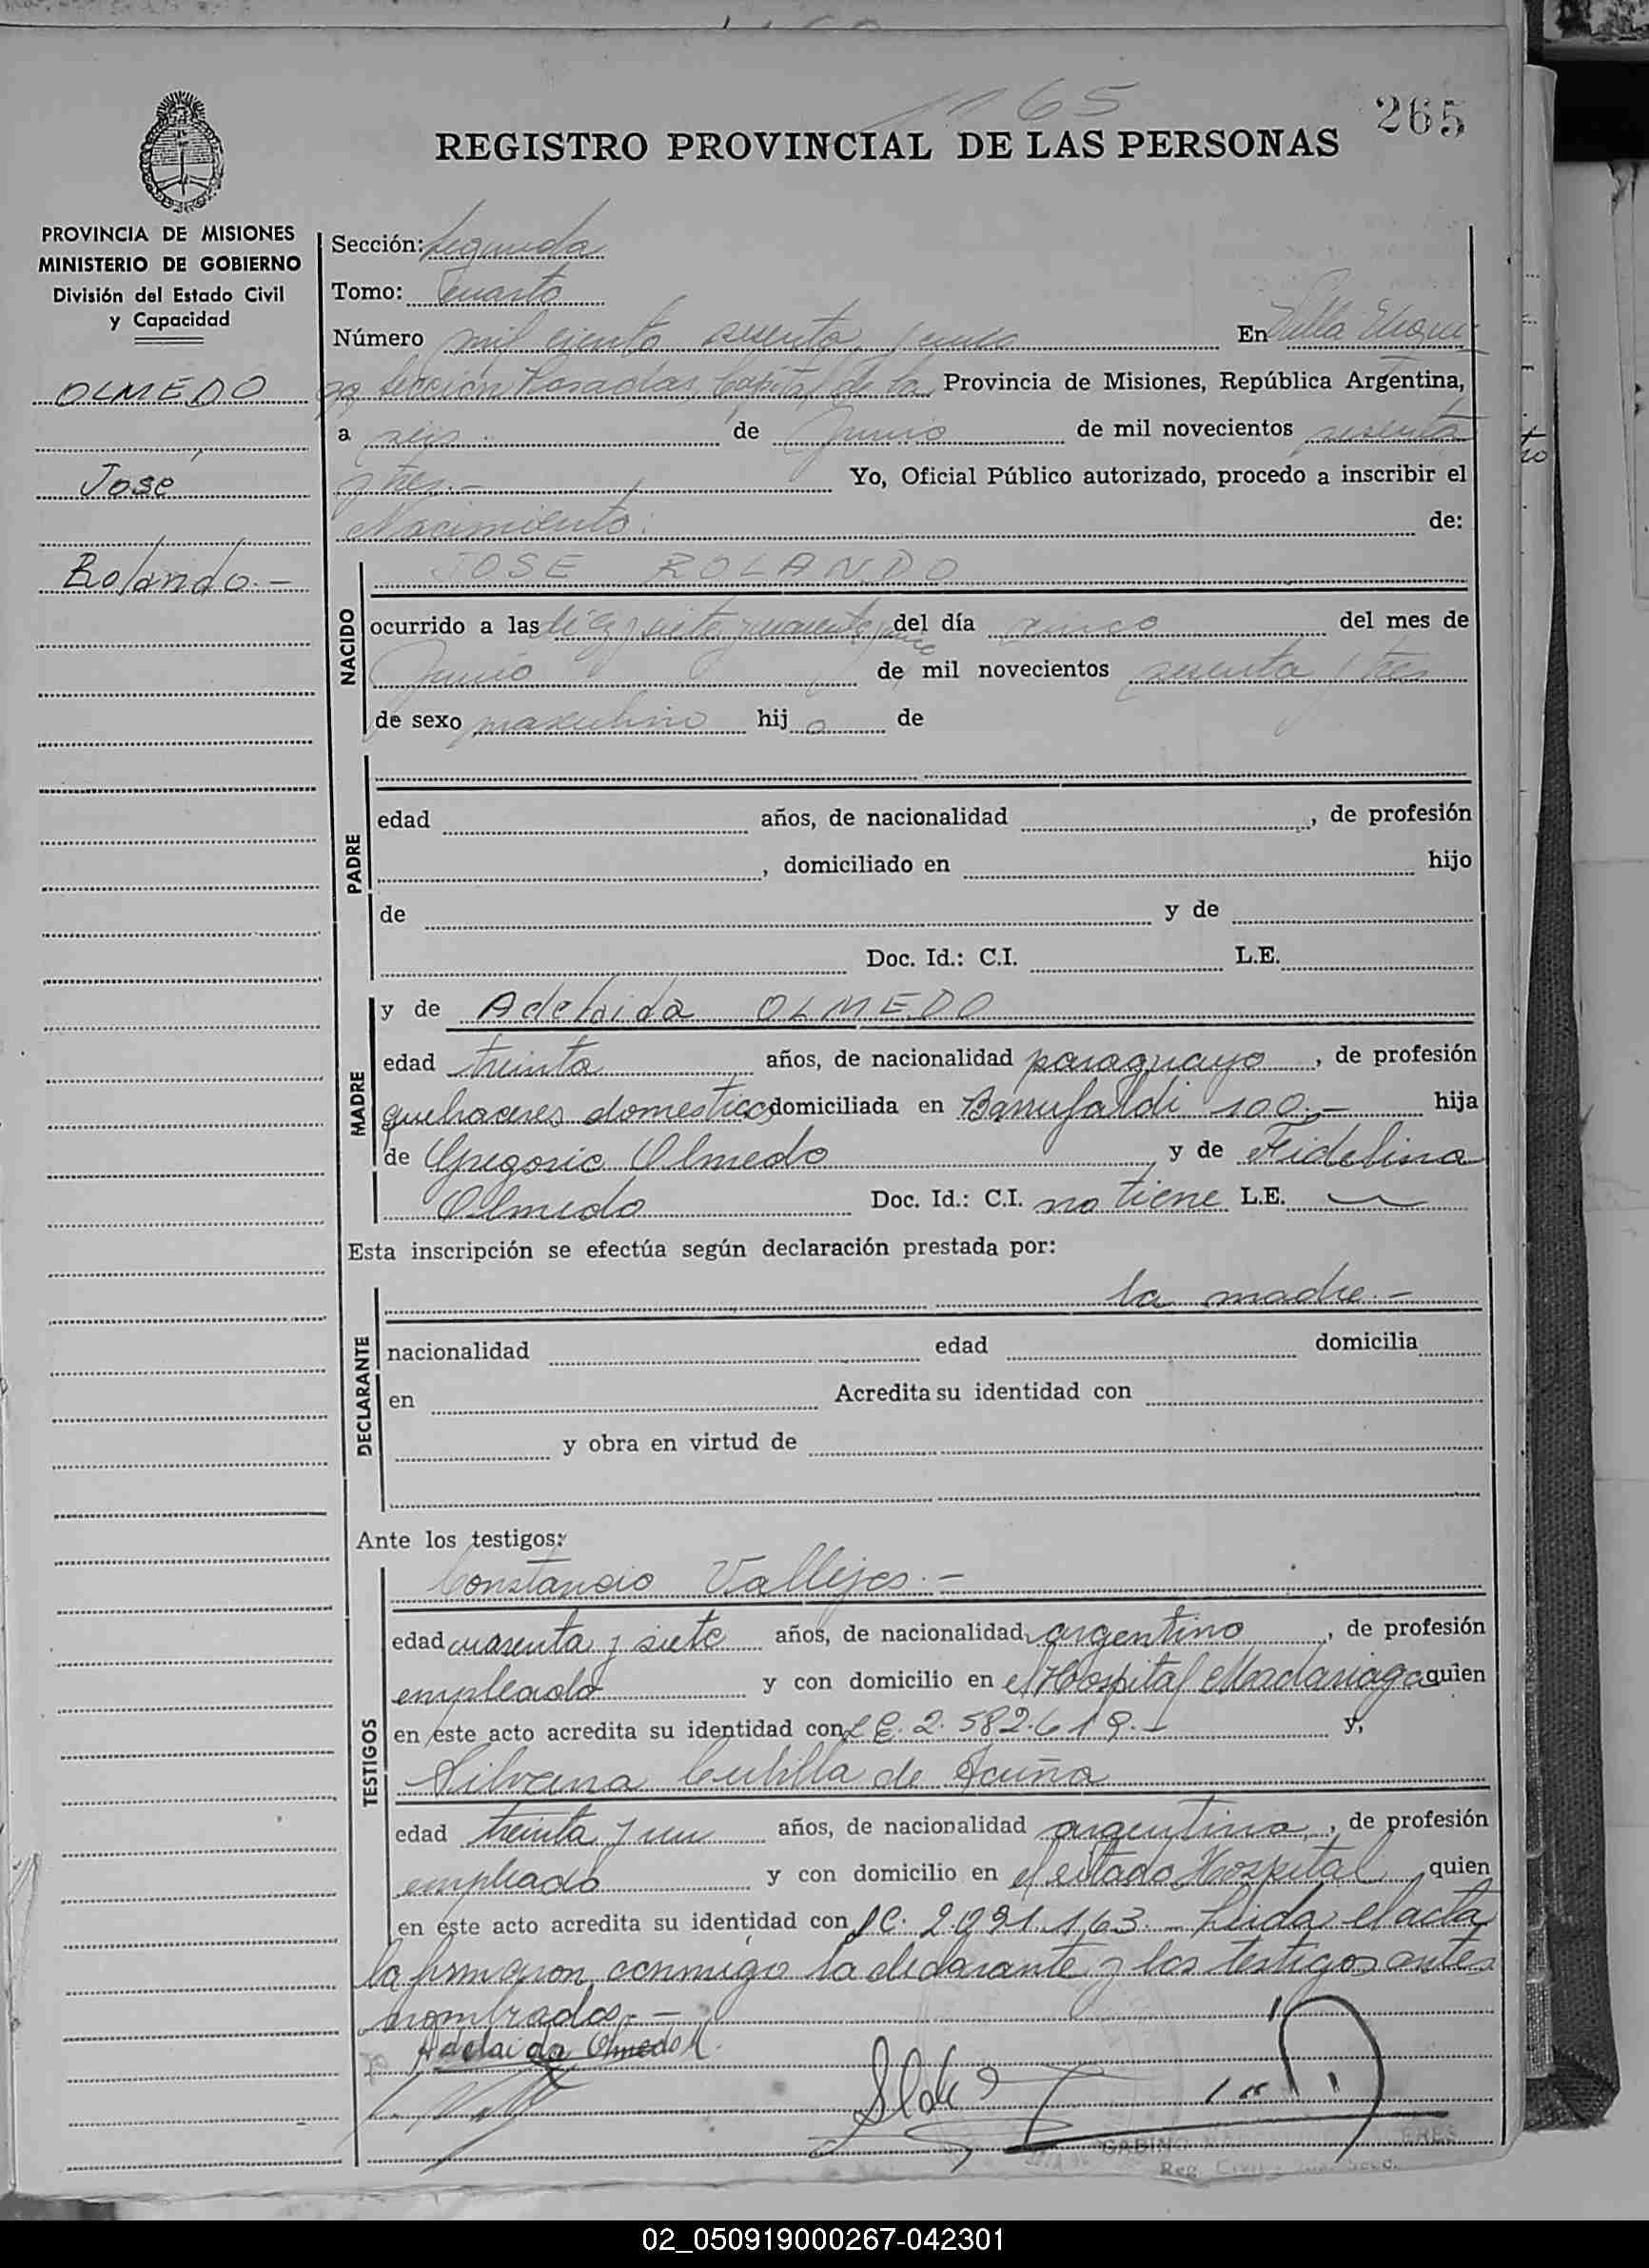 1165
265
REGISTRO PROVINCIAL DE LAS PERSONAS
PROVINCIA DE MISIONES
MINISTERIO DE GOBIERNO
División del Estado Civil
y Capacidad
OLMEDO
José
Rolando.-
Sección: Segunda
Tomo: Cuarto
Número mil ciento sesenta y cinco En Villa Urqui
za Sección Posadas, Capital de la Provincia de Misiones, República Argentina,
a seis de Junio de mil novecientos sesenta
y tres.- Yo, Oficial Público autorizado, procedo a inscribir el
Nacimiento: de:
NACIDO
JOSE ROLANDO
ocurrido a las diez y siete y cuarenta y cinco del día cinco del mes de
Junio de mil novecientos sesenta y tres
de sexo masculino hijo de
PADRE
edad años, de nacionalidad , de profesión
, domiciliado en hijo
de y de
Doc. Id.: C.I. L.E.
MADRE
y de Adelaida OLMEDO
edad treinta años, de nacionalidad paraguayo, de profesión
quehaceres domesticos domiciliada en 100.- hija
de Gregorio Olmedo y de Fidelina
Olmedo Doc. Id.: C.I. no tiene L.E.
Esta inscripción se efectúa según declaración prestada por:
DECLARANTE
la madre.-
nacionalidad edad domicilia
en Acredita su identidad con
y obra en virtud de
Ante los testigos:
TESTIGOS
Constancio Vallejos.-
edad cuarenta y siete años, de nacionalidad argentino, de profesión
empleado y con domicilio en el Hospital Madariaga quien
en este acto acredita su identidad con L.E. 2.582.619.- y,
Silveana Cubilla de Acuña
edad treinta y un años, de nacionalidad argentina, de profesión
empleado y con domicilio en el citado Hospital quien
en este acto acredita su identidad con LC. 2.091.163.- Leida el acta
la firmaron conmigo la declarante y los testigos antes
nombrados.-
Adelaida Olmedo
GABINO
Reg. Civil
02_050919000267-042301